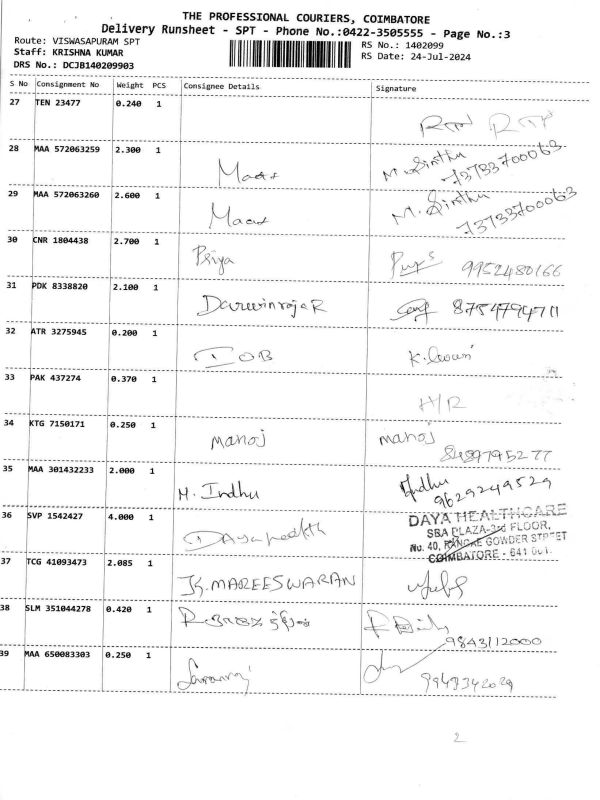 THE PROFESSIONAL COURIERS, COIMBATORE
Delivery Runsheet - SPT - Phone No.:0422-3505555 - Page No.:3
Route: VISWASAPURAM SPT
RS No.: 1402099
Staff: KRISHNA KUMAR
RS Date: 24-Jul-2024
DRS No.: DCJB140209903
S No Consignment No Weight PCS Consignee Details Signature
27 TEN 23477 0.240 1
28 MAA 572063259 2.300 1
M. Sinthu
7373700063
29 MAA 572063260 2.600 1
M. Sinthu
7373700063
30 CNR 1804438 2.700 1
Priya 9952480166
31 PDK 8338820 2.100 1
Darwinraja R 8754794711
32 ATR 3275945 0.200 1
IOB
33 PAK 437274 0.370 1
H/R
34 KTG 7150171 0.250 1
manoj manoj
8489795277
35 MAA 301432233 2.000 1
M. Indhu Indhu
9629249529
36 SVP 1542427 4.000 1
DAYA HEALTHCARE
SBA PLAZA-3rd FLOOR,
No. 40, RANGAE GOWDER STREET
COIMBATORE - 641 001.
37 TCG 41093473 2.085 1
K. MAREESWARAN
38 SLM 351044278 0.420 1
9843112000
39 MAA 650083303 0.250 1
Saranraj
9943342029
2